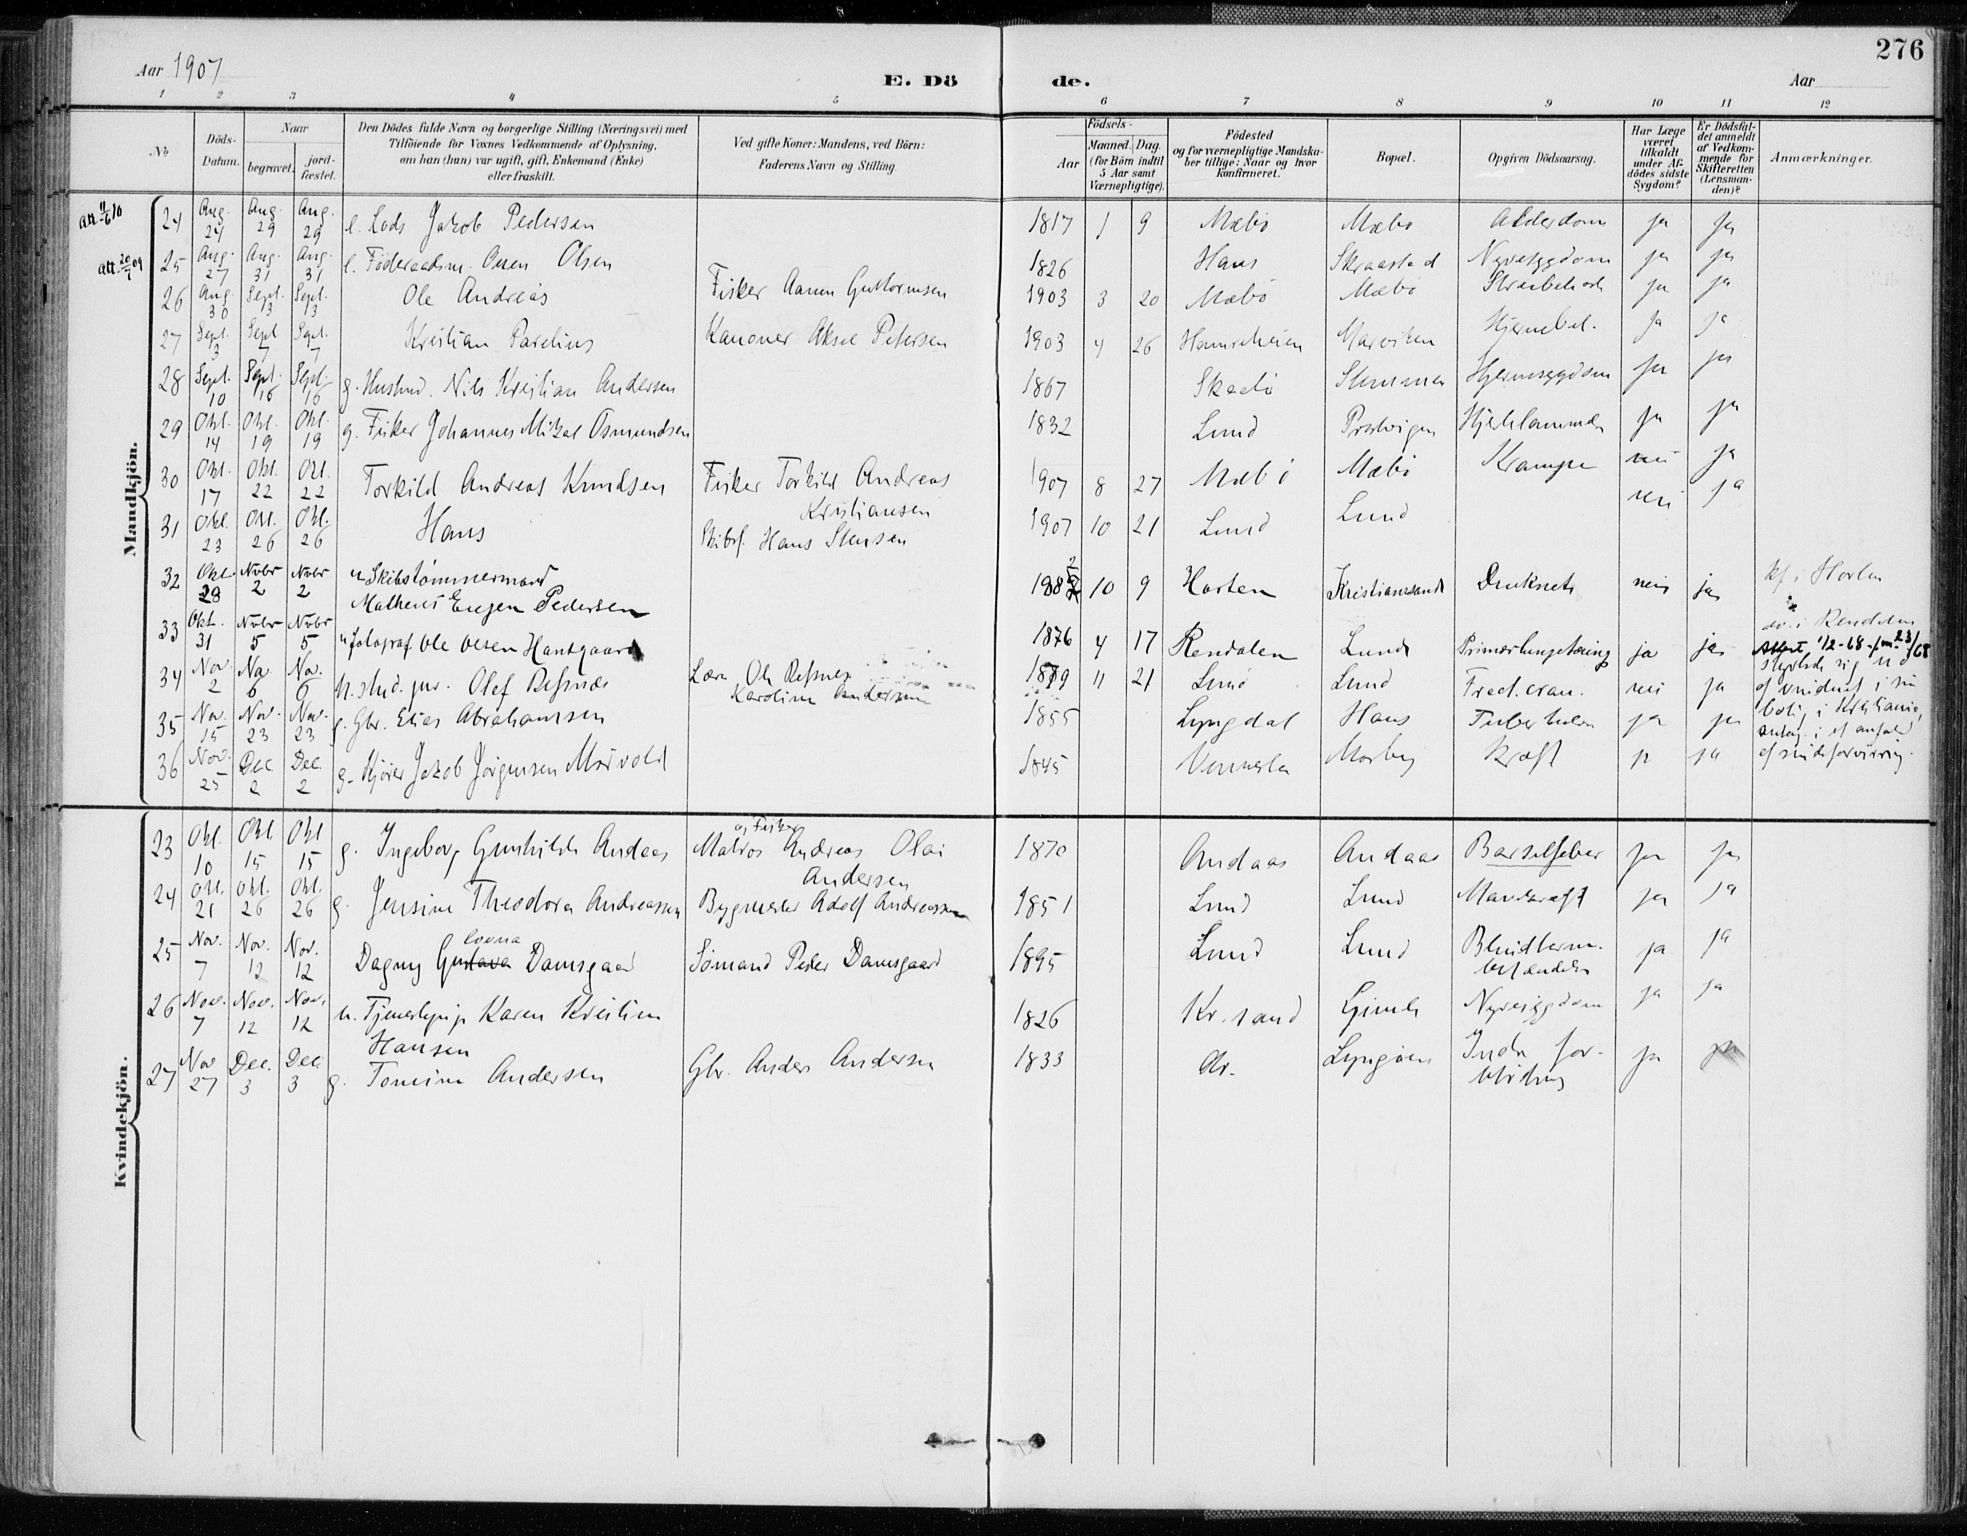 276
Aar 1907
E. Dö de.
Aar
1 2 3 4 5 6 7 8 9 10 11 12
No
Döds-
Datum.
Naar
begravet.
jord-
fæstet.
Den Dödes fulde Navn og borgerlige Stilling (Næringsvei) med
Tilföiende for Voxnes Vedkommende af Oplysning,
om han (hun) var ugift, gift, Enkemand (Enke)
eller fraskilt.
Ved gifte Koner: Mandens, ved Börn:
Faderens Navn og Stilling.
Födsels-
Aar
Maaned. Dag.
(for Börn indtil
5 Aar samt
Værnepligtige).
Födested
og for værnepligtige Mandska-
ber tillige: Naar og hvor
Konfirmeret.
Bopæl.
Opgiven Dödsaarsag.
Har Læge
været
tilkaldt
under Af-
dödes sidste
Sygdom?
Er Dödsfal-
det anmeldt
af Vedkom-
mende for
Skifteretten
(Lensman-
den)?
Anmærkninger.
Mandkjön.
Att. 11/6 10
24 Aug. 24 Aug. 29 Aug. 29 e. Lods Jakob Pedersen 1817 1 9 Mæbö Mæbö Alderdom ja ja
Att. 20/1 09
25 Aug. 27 Aug. 31 Aug. 31 e. Föderaadsm. Olsen 1826 Haus Skraastad Nyresygdom ja ja
26 Aug. 30 Sept. 13 Sept. 13 Ole Andreas Fisker Aanen Guttormsen 1903 3 20 Mæbö Mæbö ja ja
27 Sept. 3 Sept 7 Sept. 7 Kristian Parelius Kanoner Aksel Petersen 1903 4 26 Marviken Hjernebet. ja ja
28 Sept. 10 Sept. 16 Sept. 16 g. Husmd. Nils Kristian Andersen 1867 Stemmen Hjernesygdom ja ja
29 Okt. 14 Okt. 19 Okt. 19 g. Fisker Johannes Mikal Osmundsen 1832 Lund Prestvigen Hjertelammelse ja ja
30 Okt. 17 Okt. 22 Okt. 22 Torkild Andreas Knudsen Fisker Torkild Andreas
Kristiansen 1907 8 27 Mæbö Mæbö Krampe nei ja
31 Okt. 23 Okt. 26 Okt. 26 Hans Skibsf. Hans Stensen 1907 10 21 Lund Lund nei ja
32 Okt. 28 Novbr 2 Novbr 2 u Skibstömmermand
Matheus Eugen Pedersen 1882 10 9 Horten Kristianssand Druknet nei ja kf i Horten
33 Okt. 31 Novbr 5 Novbr 5 u fotograf Ole Olsen Hansgaard 1876 4 17 Rendalen Lund Primær lungetæring ja ja do. i Rendalen
Attest 1/2-68
34 Nov. 2 Nov. 6 Nov. 6 u. stud. jur. Olef Refsnæs Lærer Ole Refsnes
Karoline Andersen 1879 11 21 Lund Lund Fract. cran. nei ja styrtede sig ud
af vinduet i sin
bolig i Kristiania,
antag. i et anfald
af sindsforvirring.
35 Nov. 15 Nov. 23 Nov. 23 g. Gbr. Elias Abrahamsen 1855 Lyngdal Haus Tuberkulose ja ja
36 Nov. 25 Dec. 2 Dec. 2 g. Kjörer Jakob Jörgensen Mörvold 1845 Vennesla Mosby Kræft ja ja
Kvindekjön.
23 Okt. 10 Okt 15 Okt 15 g. Ingeborg Gunhilde Andaas Matros og Fisker Andreas Olai
Andersen 1870 Andaas Andaas Barselfeber ja ja
24 Okt. 21 Okt. 26 Okt. 26 g. Jensine Theodora Andreassen Bygmester Adolf Andreassen 1851 Lund Lund Mavekræft ja ja
25 Nov. 7 Nov. 12 Nov. 12 Dagny Gustava Lovna Damsgaard Sömand Peder Damsgaard 1895 Lund Lund Blindtarm-
betændelse ja ja
26 Nov. 7 Nov. 12 Nov. 12 u. Tjenestepige Karen Kristine
Hansen 1826 Kr.sand Gimle Nyresygdom ja ja
27 Nov 27 Dec. 3 Dec. 3 g. Tomine Andersen Gbr. Anders Andersen 1833 do. Indre for-
blödning ja ja